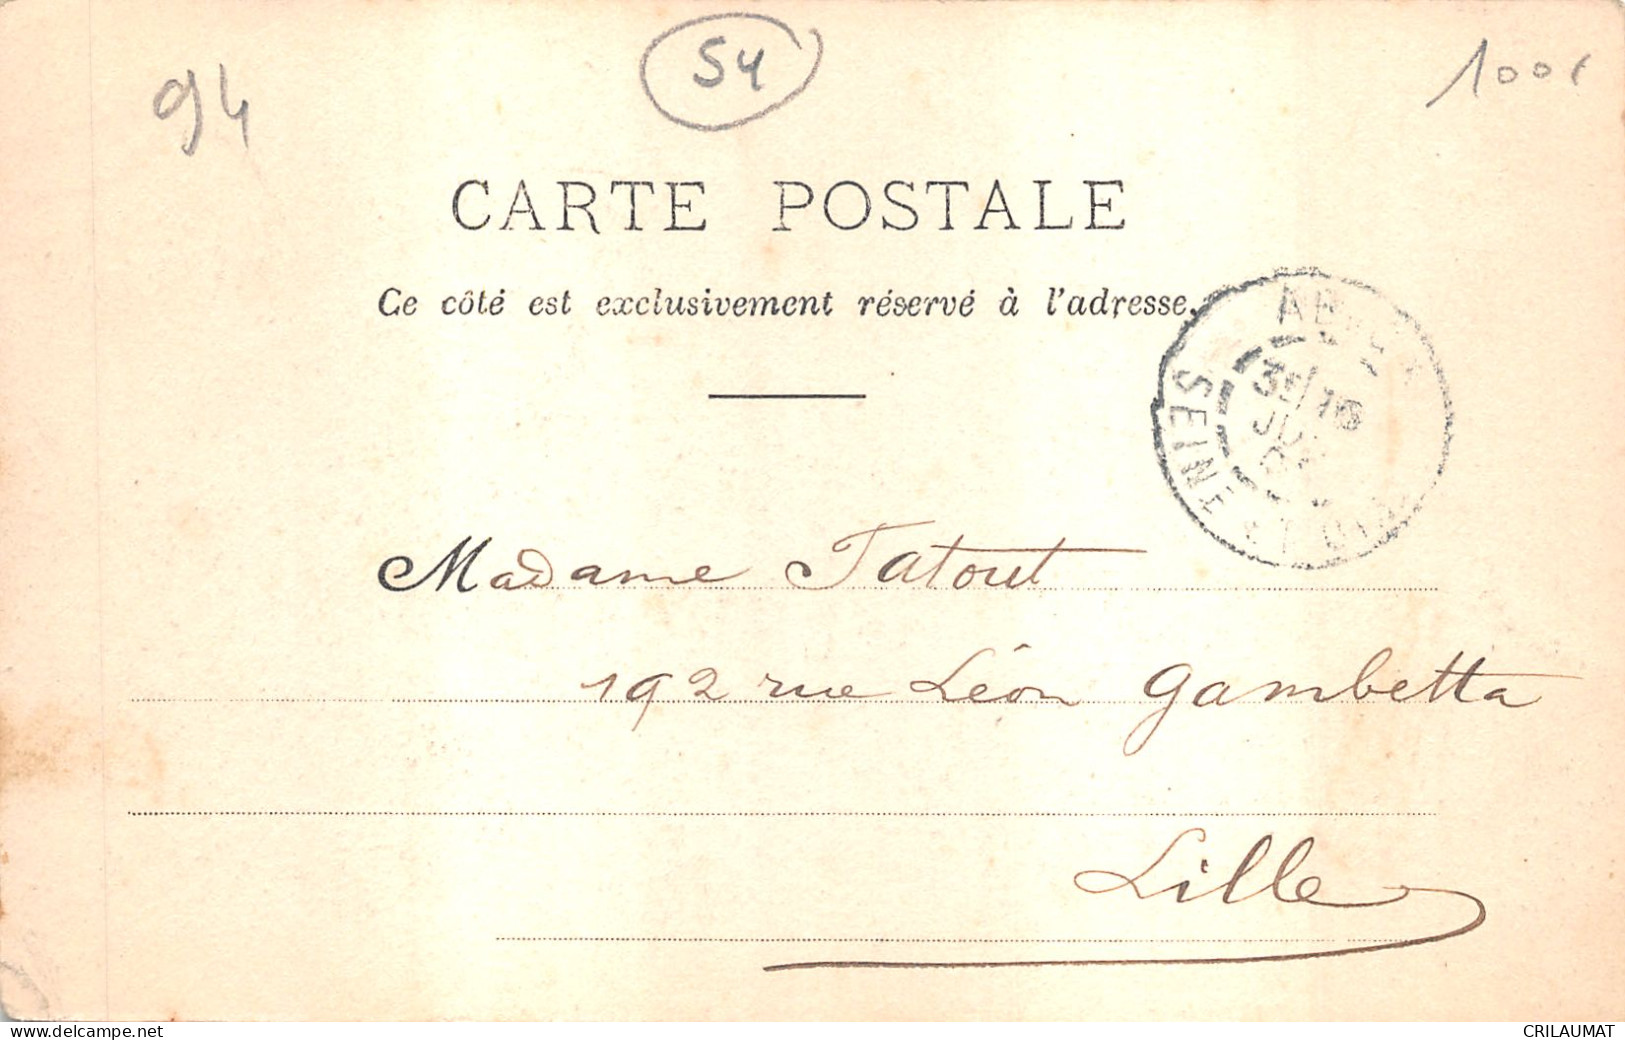 94
54
100
CARTE POSTALE
Ce côté est exclusivement réservé à l'adresse.
SEINE
Madame Tatout
192 rue Léon Gambetta
Lille
www.delcampe.net
CRILAUMAT